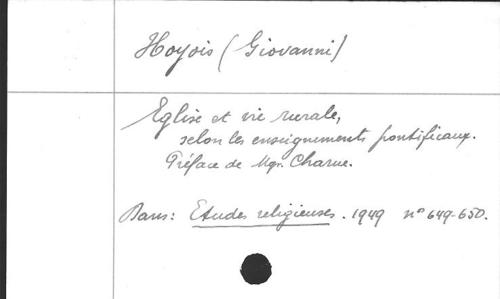 Hoyois (Giovanni)
Eglise et vie rurale,
selon les enseignements pontificaux.
Préface de Mgr. Charue.
Dans: Etudes religieuses. 1949 n° 649-650.